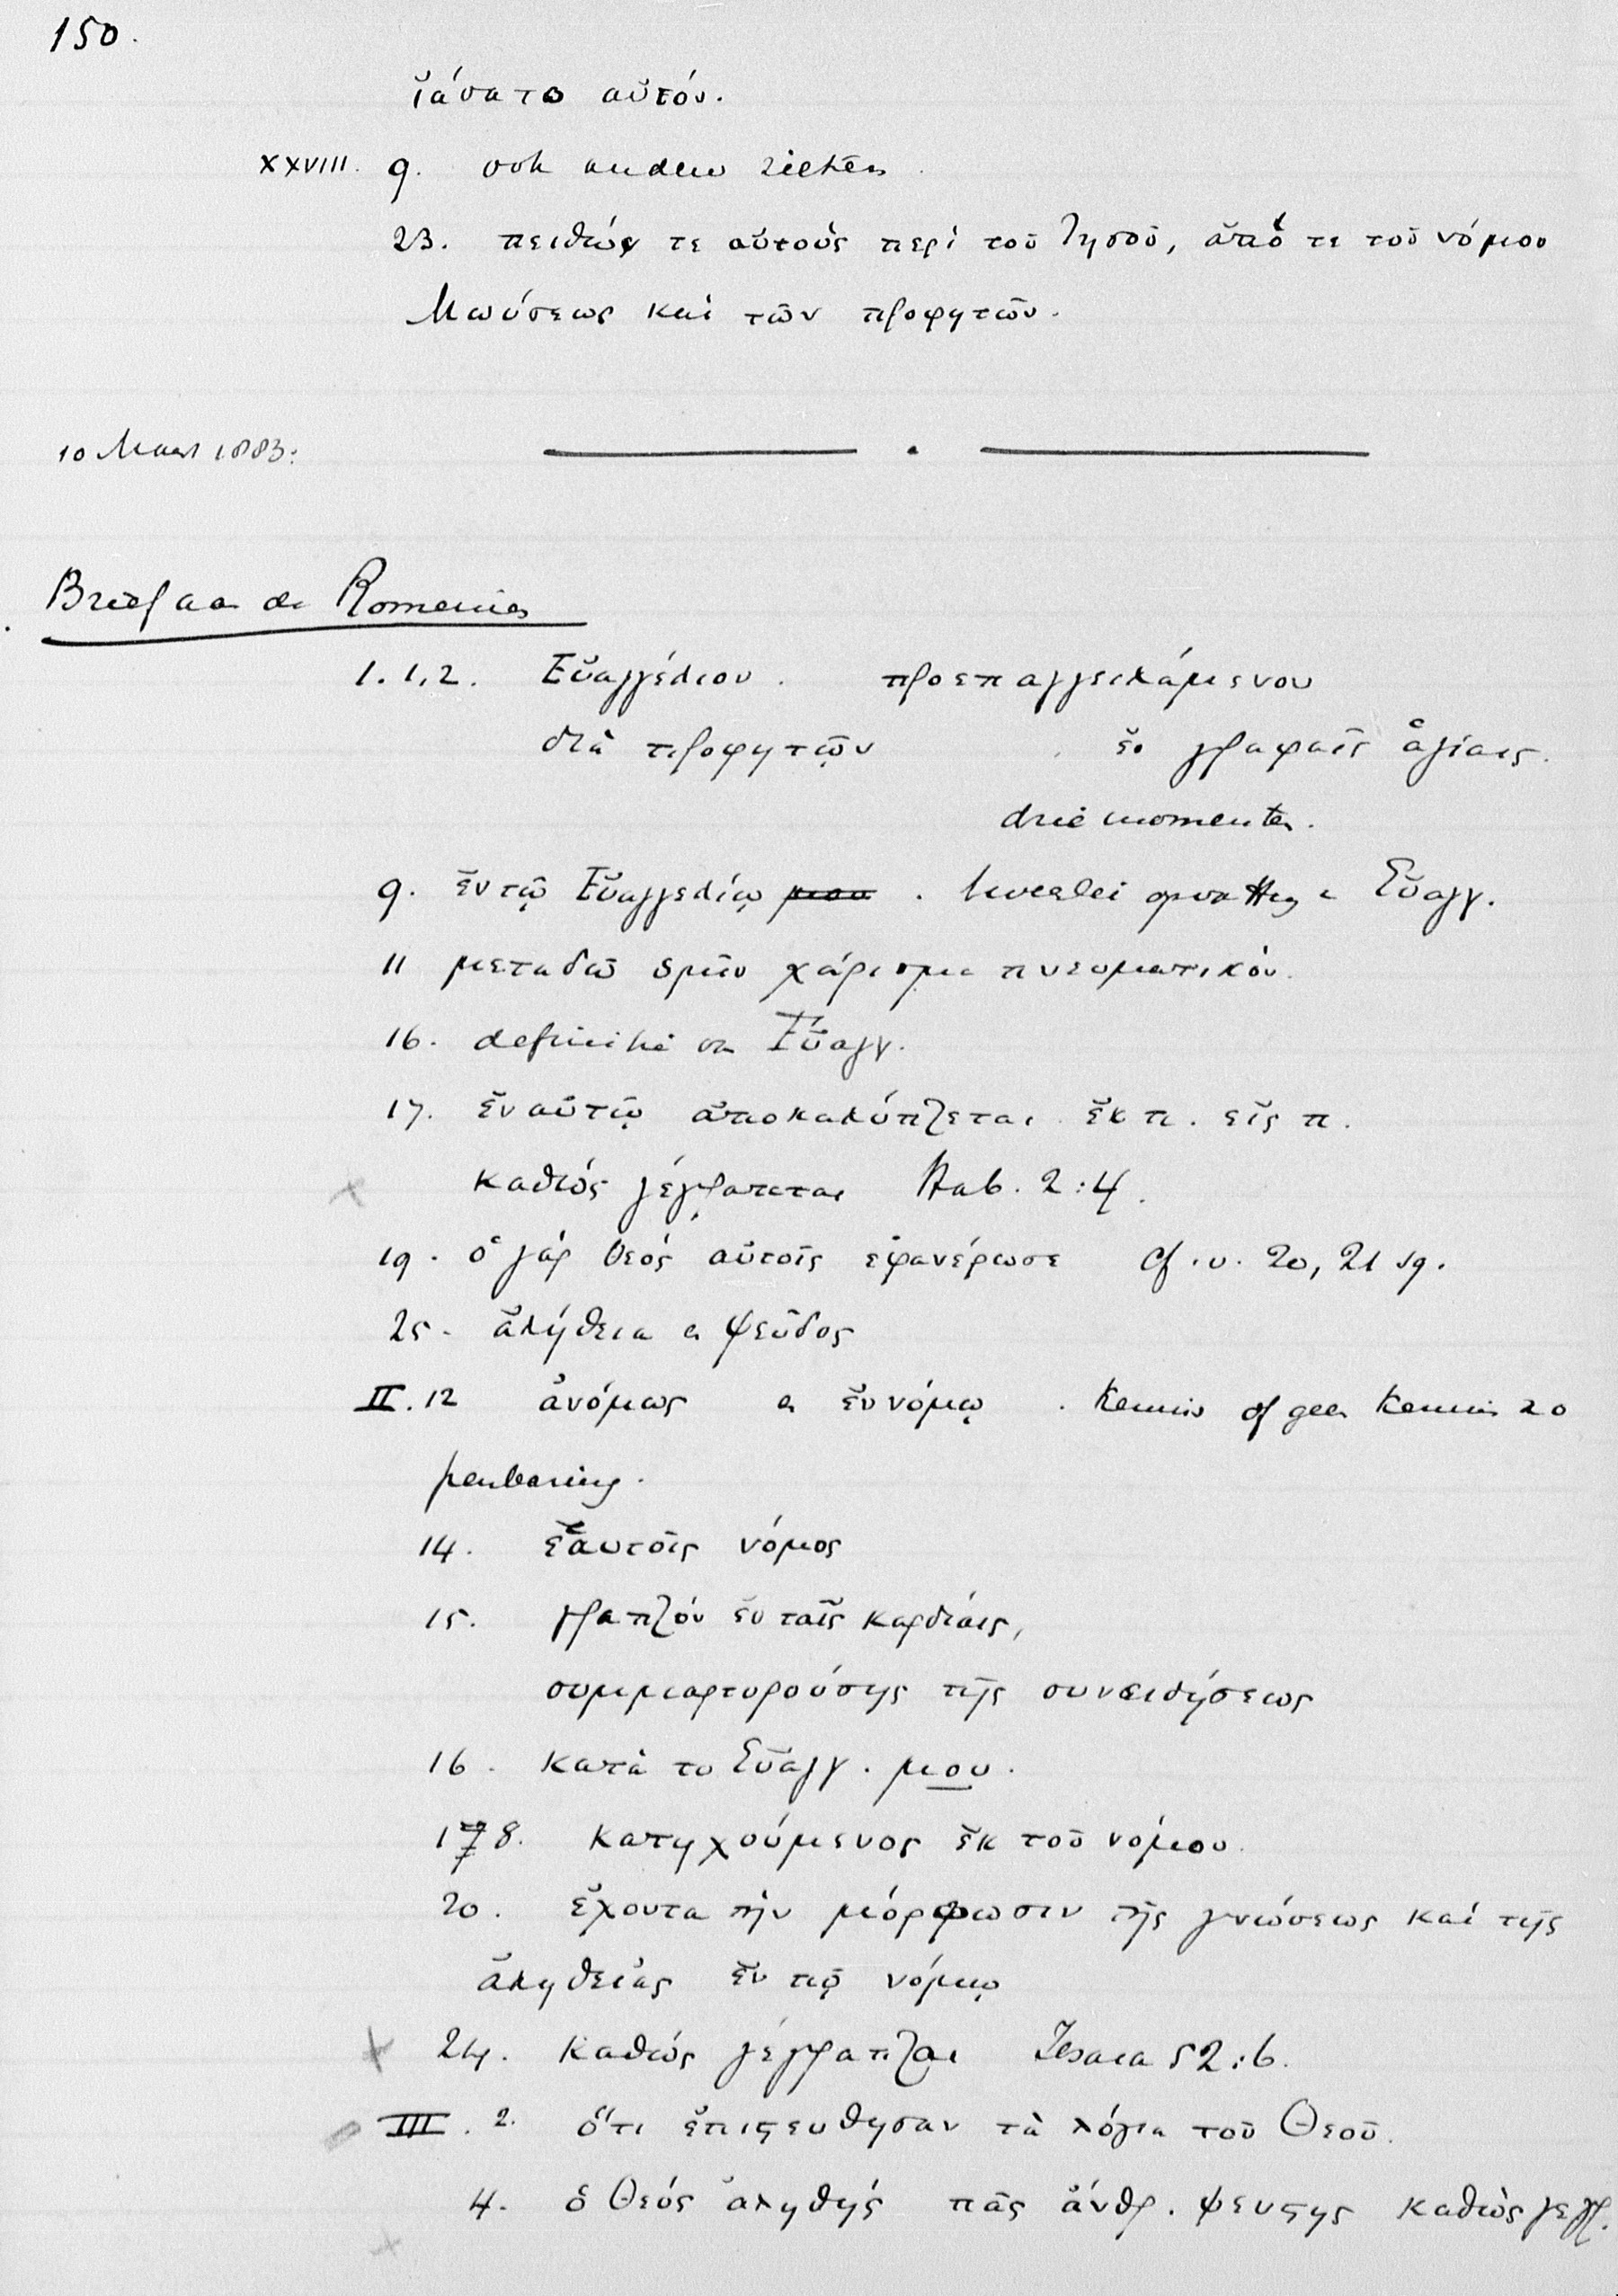 150.
ἰάσατο αὐτόν.
XXVIII. 9. ook andere zieken.
23. πείθων τε αὐτοὺς περὶ τοῦ Ἰησοῦ, ἀπό τε τοῦ νόμου
Μωύσεως καὶ τῶν προφητῶν.
10 Maart 1883.
Brief aan de Romeinen
1. 1, 2. Εὐαγγέλιον. προεπαγγειλάμενον
διὰ προφητῶν ἐν γραφαῖς ἁγίαις.
drie momenten.
9. ἐν τῷ Εὐαγγελίῳ μου. Εὐαγγ.
11 μεταδῶ ὑμῖν χάρισμα πνευματικόν.
16. definitie van Εὐαγγ.
17. ἐν αὐτῷ ἀποκαλύπτεται ἐκ π. εἰς π.
καθώς γέγραπται Hab. 2:4.
19. ὁ γάρ θεός αὐτοῖς εφανέρωσε cf. v. 20, 21 sq.
25. ἀλήθεια en ψεῦδος
II. 12 ἀνόμως en ἐν νόμῳ. Kennis of geen kennis v.d.
openbaring.
14. ἑαυτοῖς νόμος
15. γραπτόν ἐν ταῖς καρδίαις,
συμμαρτυρούσης τῆς συνειδήσεως
16. κατὰ το Εὐαγγ. μου.
178. κατηχούμενος ἐκ τοῦ νόμου.
20. ἔχοντα τὴν μόρφωσιν τῆς γνώσεως καὶ τῆς
ἀληθείας ἐν τῷ νόμῳ
24. καθώς γέγραπται Jesaia 52:6.
III. 2. ὅτι ἐπιςευθησαν τὰ λόγια τοῦ Θεοῦ.
4. ὁ Θεός ἀληθής πᾶς ἄνθρ. ψευςης καθὼς γεγρ.